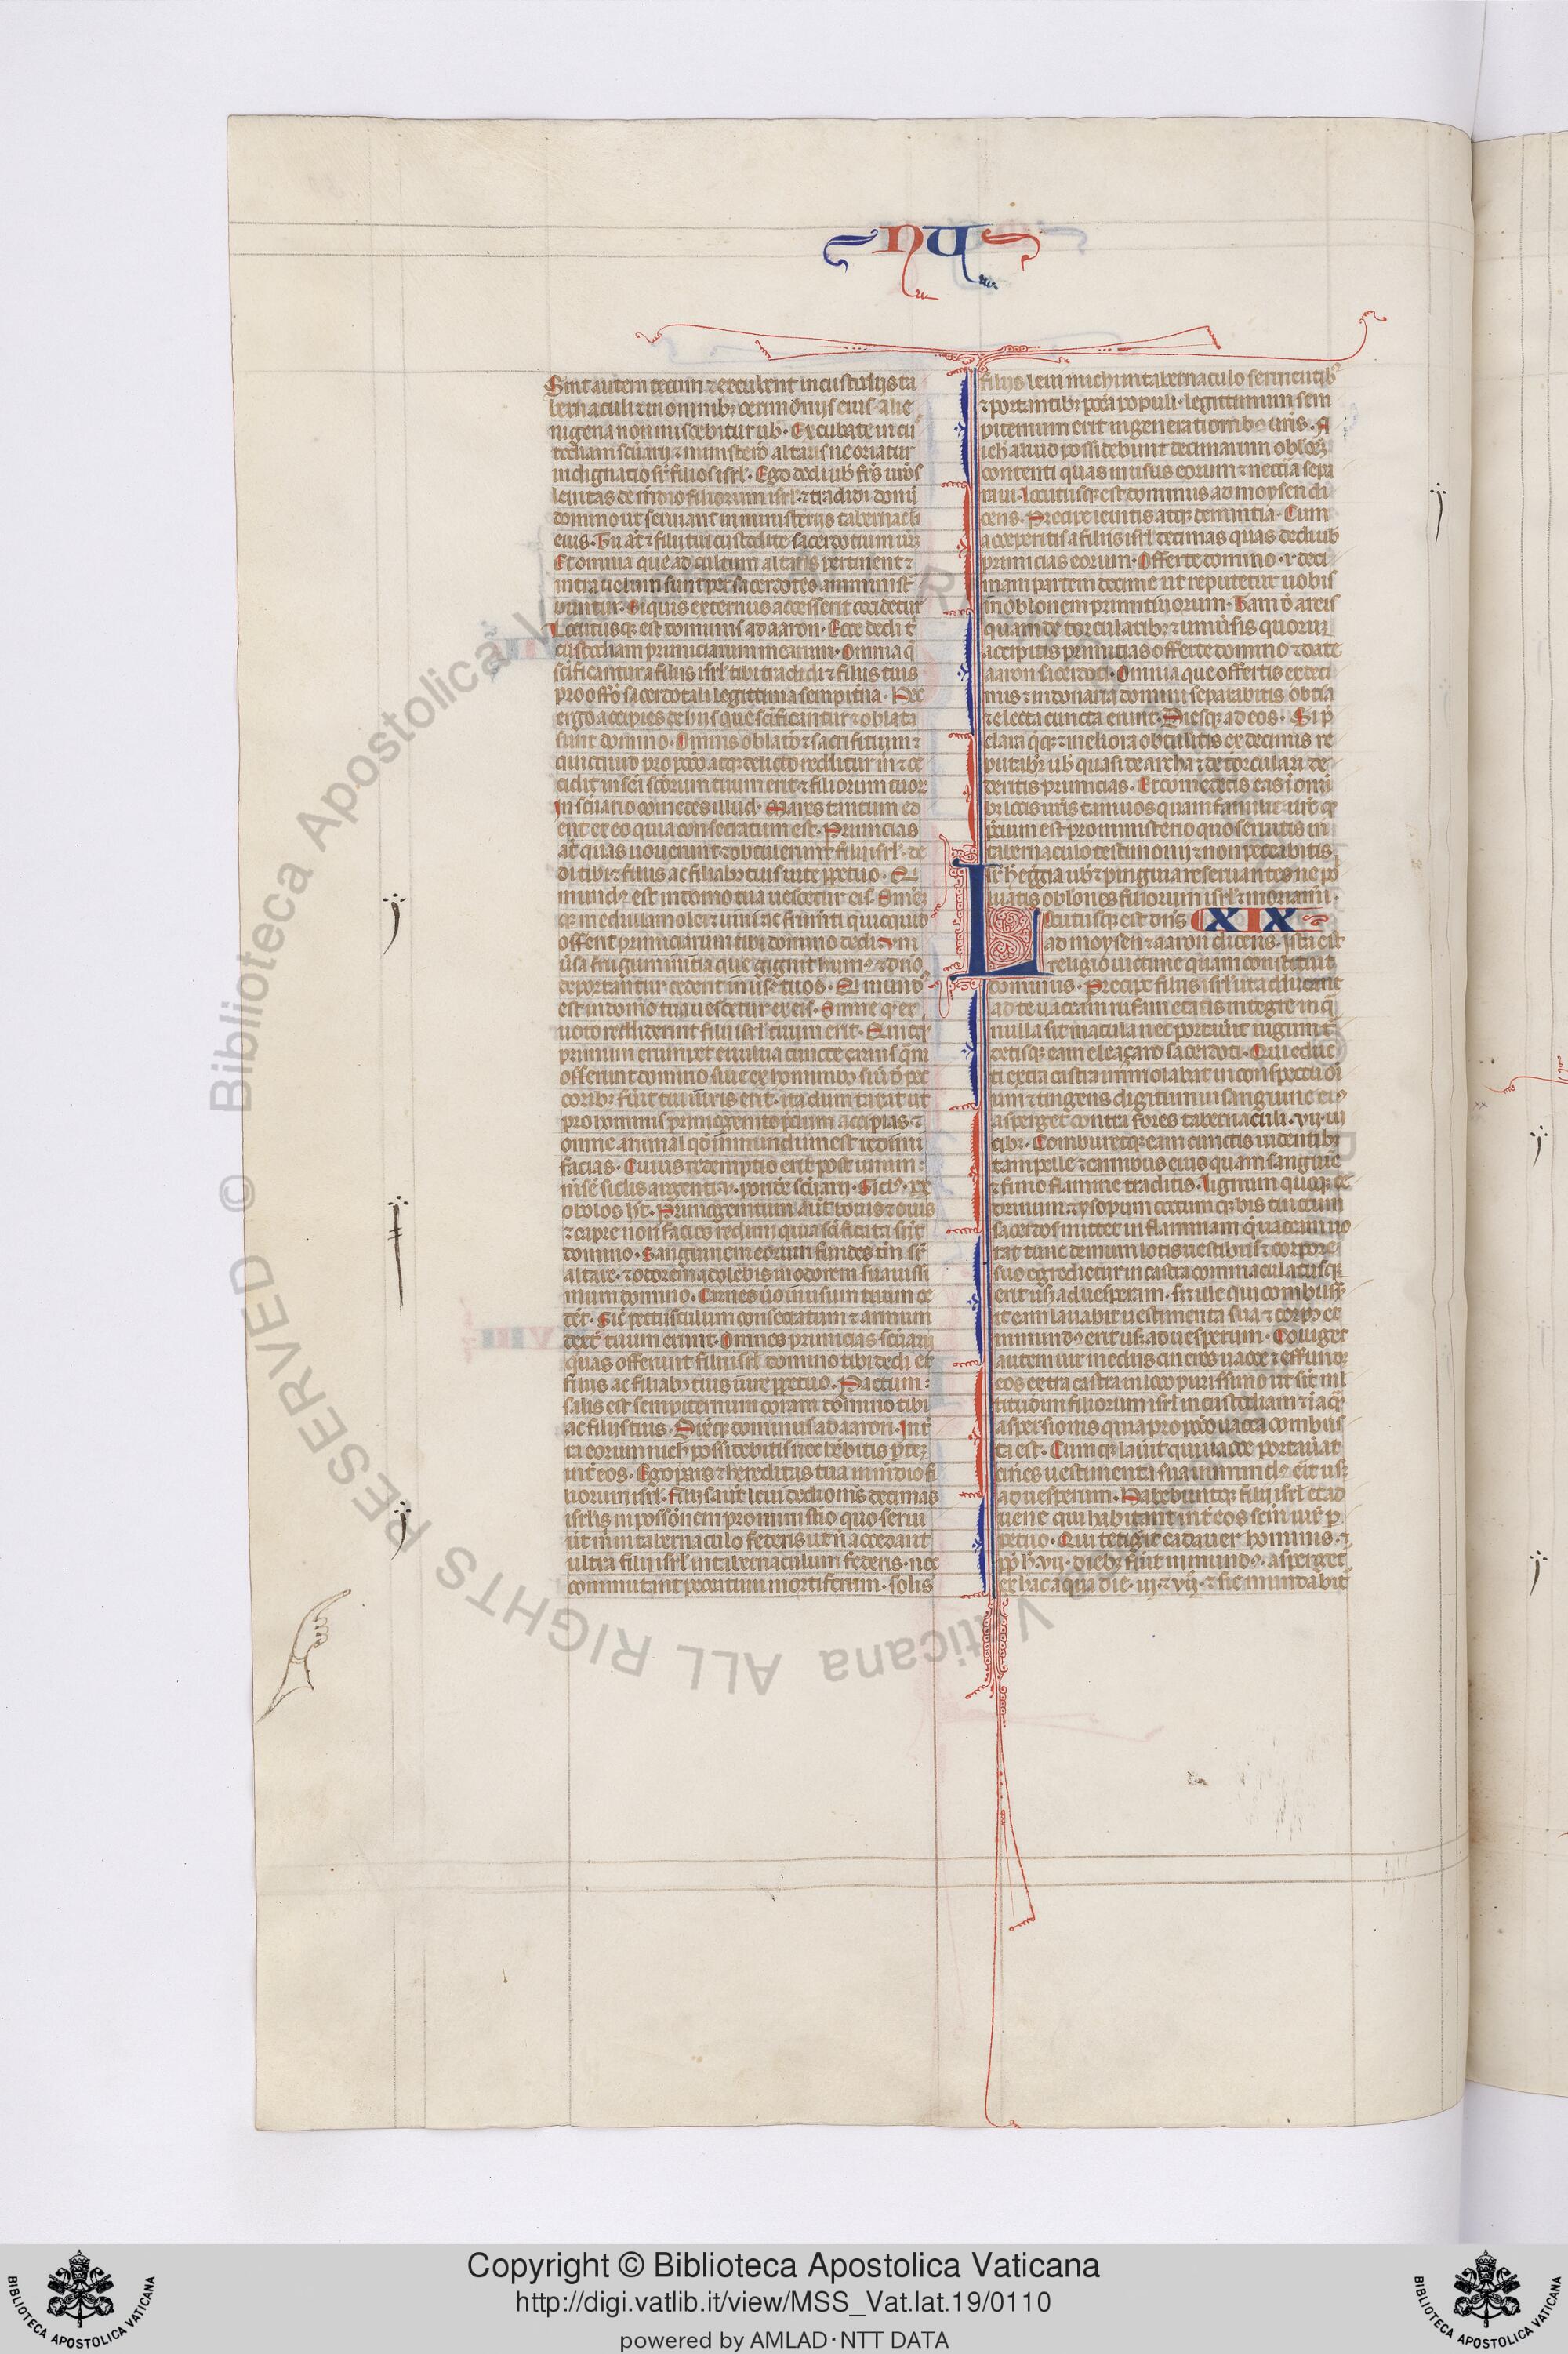 NU
Sint autem tecum ⁊ excubent in custodiis ta
bernaculi ⁊ in omnibꝫ cerimoniis eius· alie
nigena non miscebitur uob̄· Excubate in cu
todiam sc̄uarii ⁊ ministerio altaris ne oriatur
indignatio sr̄ filios isrl̄· Ego dedi uob̄ fr̄s uros
leuitas de medio filiorum isrl̄· ⁊ tradidi donū
domino ut seruiant in ministeriis tabernacli
eius· Tu āt ⁊ filii tui custodite sacerdotium ur̄m
Et omnia que ad cultum altaris pertinent ⁊
intra uelum sunt per sacerdotes aministra
buntur· Siquis externus accesserit occidetur
Locutusqꝫ est dominus ad aaron· Ecce dedi t̄
custodiam primiciarum mearum· Omnia q̄
sc̄ificantur a filiis isrl̄ tibi tradidi ⁊ filiis tuis
pro offō sacerdotali legittima sempitna· Hec
ergo accipies de hiis que sc̄ificantur ⁊ oblata
sunt domino· Omnis oblatō ⁊ sacrificium ⁊
quicquid pro pccō atqꝫ delicto redditur m̄ ⁊ ce
cidit in sc̄a sc̄orum tuum erit ⁊ filiorum tuor
In sc̄uario comedes illud· Mares tantum ed
ent ex eo quia consecratum est· Primicias
āt quas uouerint ⁊ obtulerint filii isrl̄· de
di tibi ⁊ filiis ac filiabꝫ tuis iure ppetuo· Qui
mundꝰ est in domo tua uescetur eis· Omnē
qꝫ medullam olei ⁊ uini ac frumti quicquid
offerut primiciarum tibi domino dedi Vni
ūsa frugum inicia que gignit humꝰ ⁊ dn̄o
deportantur cedent in usꝰ tuos· Qi mundꝰ
est in domo tua uescetur ex eis· Omne qd̄ ex
uoto reddiderint filii isrl̄ tuum erit· Quicqd̄
primum erumpet e uulua cuncte carnis q̄m
offerunt domino siue ex hominibꝫ siu̅ d̄ pec
coribꝫ fu̅it tui iuris erit· ita dum taxat ut
pro hominis primogenito precium accipias· ⁊
omne animal qd̄ immundum est redimi
facias· Cuius redemptio erit post unum
m̅se̅ siclis argenti v· pondē sc̄uarii· Siclꝰ· xx
obolos ht̄· Primogenitum aūt bouis ⁊ ouis
⁊ capre non facies redimi quia sc̄ificata sūt
domino· Sanguinem eorum fundes tm̄ sr̄
altare· ⁊ adipem adolebis in odorem suauissi
mum domino· Carnes ūo in usum tuum ce
dēt· Sic̄ pectusculum consecratum ⁊ armum
dext̄ tuum erunt· Omnes primicias sc̄uarii
quas offerunt filii isrl̄ domino tibi dedi et
filiis ac filiabꝫ tuis iure ppetuo· Pactum
salis est sempiternum coram domino tibi
ac filiis tuis· Dixitqꝫ dominus ad aaron· In t̄
ra eorum nich̄ possidebitis nec hēbitis ptēz
int̄ eos· Ego pars ⁊ hereditas tua in medio fi
liorum isrl̄· Filiis aūt leui dedi omnēs decimas
isrl̄is in possōnem pro ministerio quo serui
ūt m̄ in tabernaculo federis ut n̄ accedant
ultra filii isrl̄ in tabernaculum federis· nec
commitant peccatum mortiferum· solis
filiis leui michi in tabernaculo seruientibꝫ
⁊ portantibꝫ pcc̄a populi· legittimum sem
piternum erit in generationibꝫ uris· N
ich̄ aliud possidebunt decimarum oblōēꝫ
contenti quas in usus eorum ⁊ neccīa sepa
raui· Locutusqꝫ est dominus ad moysen di
cens· Precipe leuitis atqꝫ denuntia· Cum
acceperitis a filiis isrl̄ decimas quas dedi uob̄
primicias eorum· Offerte domino· ⁊ deci
mam partem decime ut reputetur uobis
in oblōnem primitiuorum· Tam d̄ areis
quam de torcularibꝫ ⁊ uniūsis quoruꝫ
accipitis primitias offerte domino ⁊ date
aaron sacerdoti· Omnia que offertis ex deci
mis ⁊ in donaria domini separabitis optīa
⁊ electa cuncta erunt· Dicesqꝫ ad eos· Si p̄
clara q̄qꝫ ⁊ meliora obtuleritis ex decimis re
putabit̄ uob̄ quasi de area ⁊ de torculari de
deritis primicias· Et comedetis eas ī omī
bꝫ locis ūris tam uos quam familie ur̄e qꝫ
p̄cium est pro ministerio quo seruitis in
tabernaculo testimonii ⁊ non peccabitis
sr̄ h̄ egregia uob̄ ⁊ pinguia reseruantes ne po
luatis oblōnes filiorum isrl̄ ⁊ moriamī·
Locutusqꝫ est dn̄s XIX
ad moysen ⁊ aaron dicens· ista est
religio uictime quam constituit
dominus· Precipe filiis isrl̄ ut adducant
ad te uaccam rufam etatis integre in q̄
nulla sit macula nec portau̅it iugum t̄
detisqꝫ eam eleazaro sacerdoti· Qui educ
tā extra castra immolabit in conspectu oī
um ⁊ tingens digitum in sanguine eiꝰ
asperget contra fores tabernaculi· vii· ui
cibꝫ· Comburetqꝫ eam cunctis uidentibꝫ
tam pelle ⁊ carnibus eius quam sanguīe
⁊ fimo flamme traditis· Lignum quoqꝫ ce
drinum ⁊ ysopum coccumqꝫ bis tinctum
sacerdos mittet in flammam q̄ uaccam uo
rat tunc demum lotis uestibus ⁊ corpore
suo egredietur in castra commaculatusqꝫ
erit usꝫ ad uesperam· sꝫ ⁊ ille qui combuss̄
it eam lauabit uestimenta sua ⁊ corpꝫ et
immundꝰ erit usꝫ ad uesperum· Colliget
autem uir mundus cineres uacce ⁊ effundꝫ
eos extra castra in loco purissimo ut sit ml̄
titudini filiorum isrl̄ in custodiam ⁊ ī aq̄ꝫ
aspersionis quia pro pccō uacca combus
ta est· Cumqꝫ lau̅it qui uacce portau̅at
cīn̄es uestimenta sua immundꝰ erit usꝫ
ad uesperum· Habebuntqꝫ filii isrl̄ et ad
uene qui habitant int̄ eos sc̄m iure p̄
petuo· Qui tetig̅it cadauer hominis· ⁊
pp̄ h̄ vii· diebꝫ fu̅it immundꝰ· asperget̄
ex hac aqua die· iii ⁊ vii· ⁊ sic mundabit̄
© Biblioteca Apostolica Vaticana ALL RIGHTS RESERVED
Copyright © Biblioteca Apostolica Vaticana
http://digi.vatlib.it/view/MSS_Vat.lat.19/0110
powered by AMLAD·NTT DATA
BIBLIOTECA APOSTOLICA VATICANA
BIBLIOTECA APOSTOLICA VATICANA